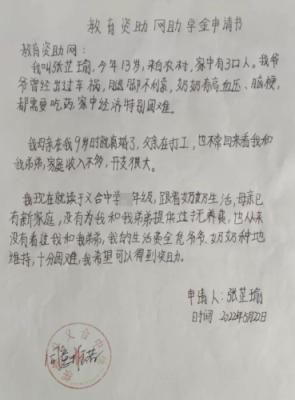 教育资助网助学金申请书
教育资助网：
我叫张芷瑜，今年13岁，来自农村，家中有3口人。我爷
爷曾经出过车祸，腿脚不利索，奶奶有高血压、脑梗，
都需要吃药，家中经济特别困难。
我母亲在我9岁时就离婚了，父亲在打工，也不常回来看我和
我弟弟，家庭收入不多，开支很大。
我现在就读于义合中学 年级，跟着奶奶生活，母亲已
有新家庭，没有为我和我弟弟提供抚养费，也从来
没有看过我和我弟弟，我的生活费全靠爷爷、奶奶种地
维持，十分困难，我希望可以得到资助。
申请人：张芷瑜
时间：2022年5月22日
义合中
同意推荐